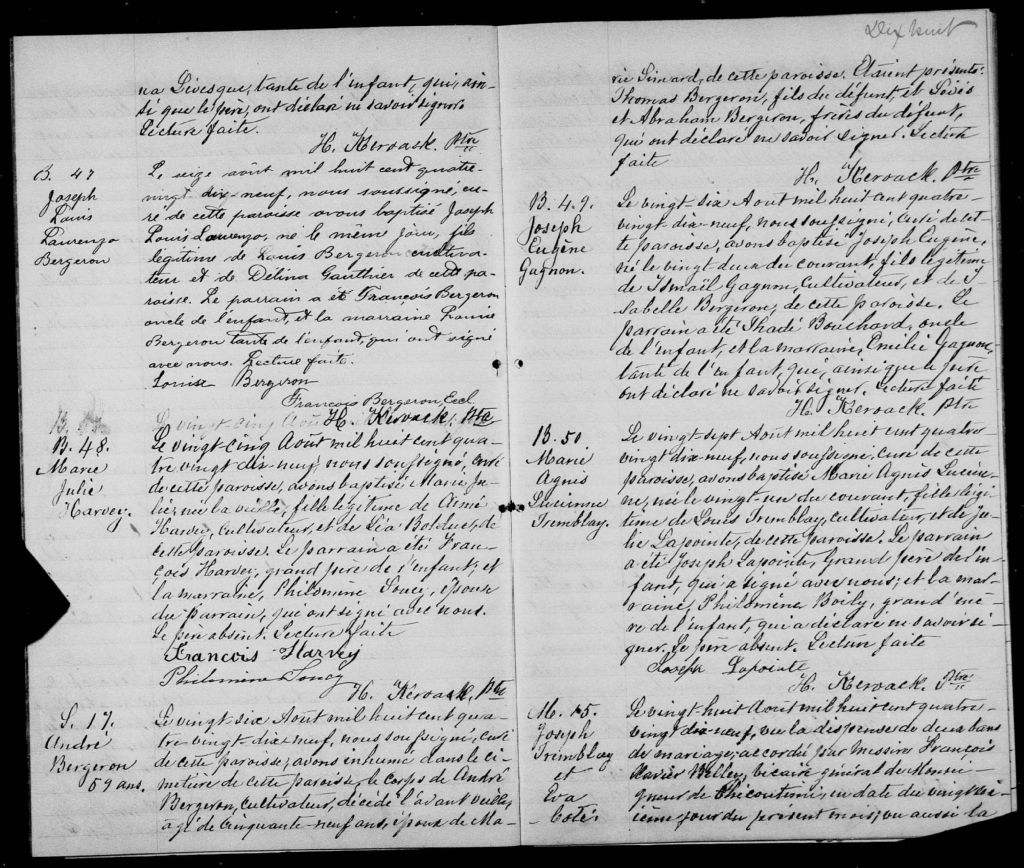 na Lévesque, tante de l'enfant, qui, ain-
si que le père, ont déclaré ne savoir signer.
Lecture faite.
H. Kéroack. Ptre
B. 47
Joseph
Louis
Laurenzo
Bergeron
Le seize août mil huit cent quatre-
vingt-dix-neuf, nous soussigné, cu-
ré de cette paroisse avons baptisé Joseph
Louis Laurenzo, né le même jour, fils
légitime de Louis Bergeron cultiva-
teur et de Délina Gauthier de cette pa-
roisse. Le parrain a été François Bergeron
oncle de l'enfant, et la marraine
Bergeron tante de l'enfant, qui ont signé
avec nous. Lecture faite.
Louise Bergeron
François Bergeron Eccl.
Le vingt-cinq Août H. Kéroack. Ptre
B. 48.
Marie
Julie
Harvey.
Le vingt-cinq Août mil huit cent qua-
tre vingt dix-neuf, nous soussigné, curé
de cette paroisse, avons baptisé Marie Ju-
lie, née la veille, fille légitime de Aimé
Harvey, Cultivateur, et de Léa Bolduc, de
cette paroisse. Le parrain a été Fran-
çois Harvey, grand père de l'enfant, et
la marraine, Philomène Soucy, épouse
du parrain, qui ont signé avec nous.
Le père absent. Lecture faite
François Harvey
Philomène Soucy
H. Kéroack. Ptre
S. 17.
André
Bergeron
59 ans.
Le vingt-six Août mil huit cent qua-
tre-vingt-dix-neuf, nous soussigné, curé
de cette paroisse, avons inhumé dans le ci-
metière de cette paroisse, le corps de André
Bergeron, Cultivateur, décédé l'avant veille,
agé de Cinquante-neuf ans, époux de Ma-
Dix huit
rie Simard, de cette paroisse. Étaient présents:
Thomas Bergeron, fils du défunt, et Loüis
et Abraham Bergeron, frères du défunt,
qui ont déclaré ne savoir signer. Lecture
faite
H. Kéroack. Ptre
B. 49.
Joseph
Eugène
Gagnon.
Le vingt-six Aout mil huit-cent quatre-
vingt-dix-neuf, nous soussigné, Curé de cet-
te paroisse, avons baptisé Joseph Eugène,
né le vingt-deux du courant, fils légitime
de Ismaël Gagnon, Cultivateur, et de I-
sabelle Bergeron, de cette paroisse. Le
parrain a été Thadé Bouchard, oncle
de l'enfant, et la marraine, Emélie Gagnon,
tante de l'enfant, qui, ainsi que le père
ont déclaré ne savoir signer. Lecture faite
H. Kéroack. Ptre
B. 50
Marie
Agnis
Lucienne
Tremblay.
Le vingt-sept Août mil huit cent quatre
vingt dix-neuf, nous soussigné, Curé de cette
paroisse, avons baptisé Marie Agnis Lucien-
ne, née le vingt-un du courant, fille légi-
time de Louis Tremblay, Cultivateur, et de Ju-
lie Lapointe, de cette paroisse. Le parrain
a été Joseph Lapointe, Grand père de l'en-
fant, qui a signé avec nous; et la mar-
raine, Philomèna Boily, grand'mè-
re de l'enfant, qui a déclaré ne savoir si-
gner. Le père absent. Lecture faite
Joseph Lapointe
H. Kéroack. Ptre
M. 15.
Joseph
Tremblay
et
Eva
Coté.
Le vingt-huit Août mil huit cent quatre-
vingt dix-neuf, vu la dispense de deux bans
de mariage, accordé par Messire François
Xavier Belley, vicaire général de Monsei-
gneur de Chicoutimi, en date du vingt si-
xième jour du présent mois; vu aussi la